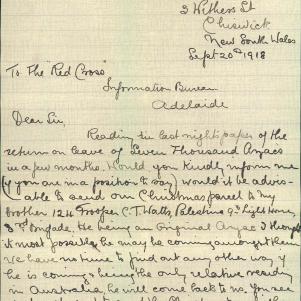 3 Withers St
Chiswick
New South Wales
Sept 20th 1918
To The "Red Cross"
Information Bureau
Adelaide
Dear Sir,
Reading in last nights paper of the
return on leave of Seven Thousand Anzacs
in a few months. Would you kindly inform me
(if you are in a position to say) would it be advis-
able to send our Christmas parcel to my
brother 124 Trooper C. T. Watts Palestine 9th Light Horse,
3rd Brigade. He being an original Anzac I thought
it most possible he may be coming amongst them
we have no time to find out any other way if
he is coming & being the only relative residing
in Australia he will come back to us. You see